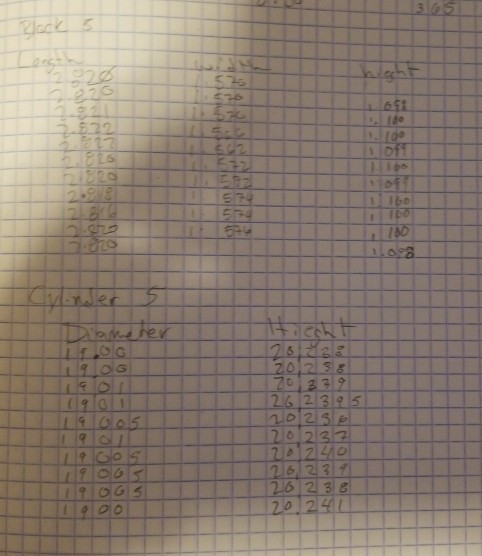 365
Block 5
Length width hight
2.820 1.576 1.098
2.820 1.576 1.100
2.821 1.576 1.100
2.822 1.566 1.099
2.822 1.562 1.100
2.820 1.572 1.099
2.820 1.572 1.100
2.818 1.574 1.100
2.816 1.574 1.100
2.820 1.576 1.098
2.820
Cylinder 5
Diameter Hieght
19.00 20.238
19.00 20.238
1901 20.239
1901 20.2395
19.005 20.236
19.01 20.237
19005 20.240
19005 20.239
19005 20.238
1900 20.241